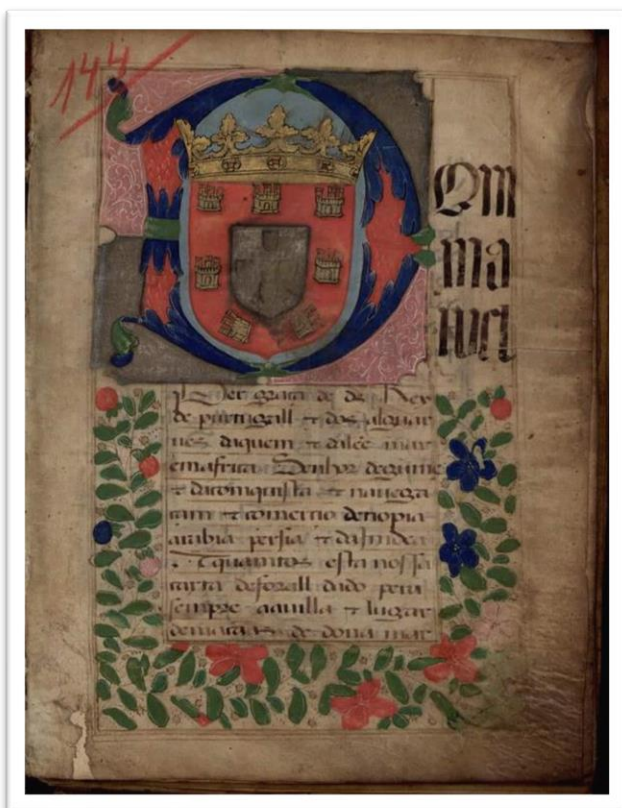 144
D Om
ma
nuel
Per graça de ds Rey
de portugall ⁊ dos algar
ues daquem ⁊ dalẽe mar
em africa Senhor deguinee
⁊ daconquista ⁊ nauega
cam ⁊ comercio detiopia
arabia persia ⁊ dajndea
quantos esta nossa
carta deforall dado pera
sempre aauilla ⁊ lugar
de dona mar